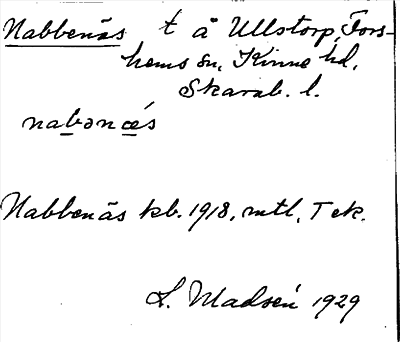 Nabbenäs t å Ullstorp, Fors-
hems sn, Kinne hd,
Skarab. l.
nabənæ̀s
Nabbenäs kb. 1918, mtl, T ek.
L. Madsén 1929